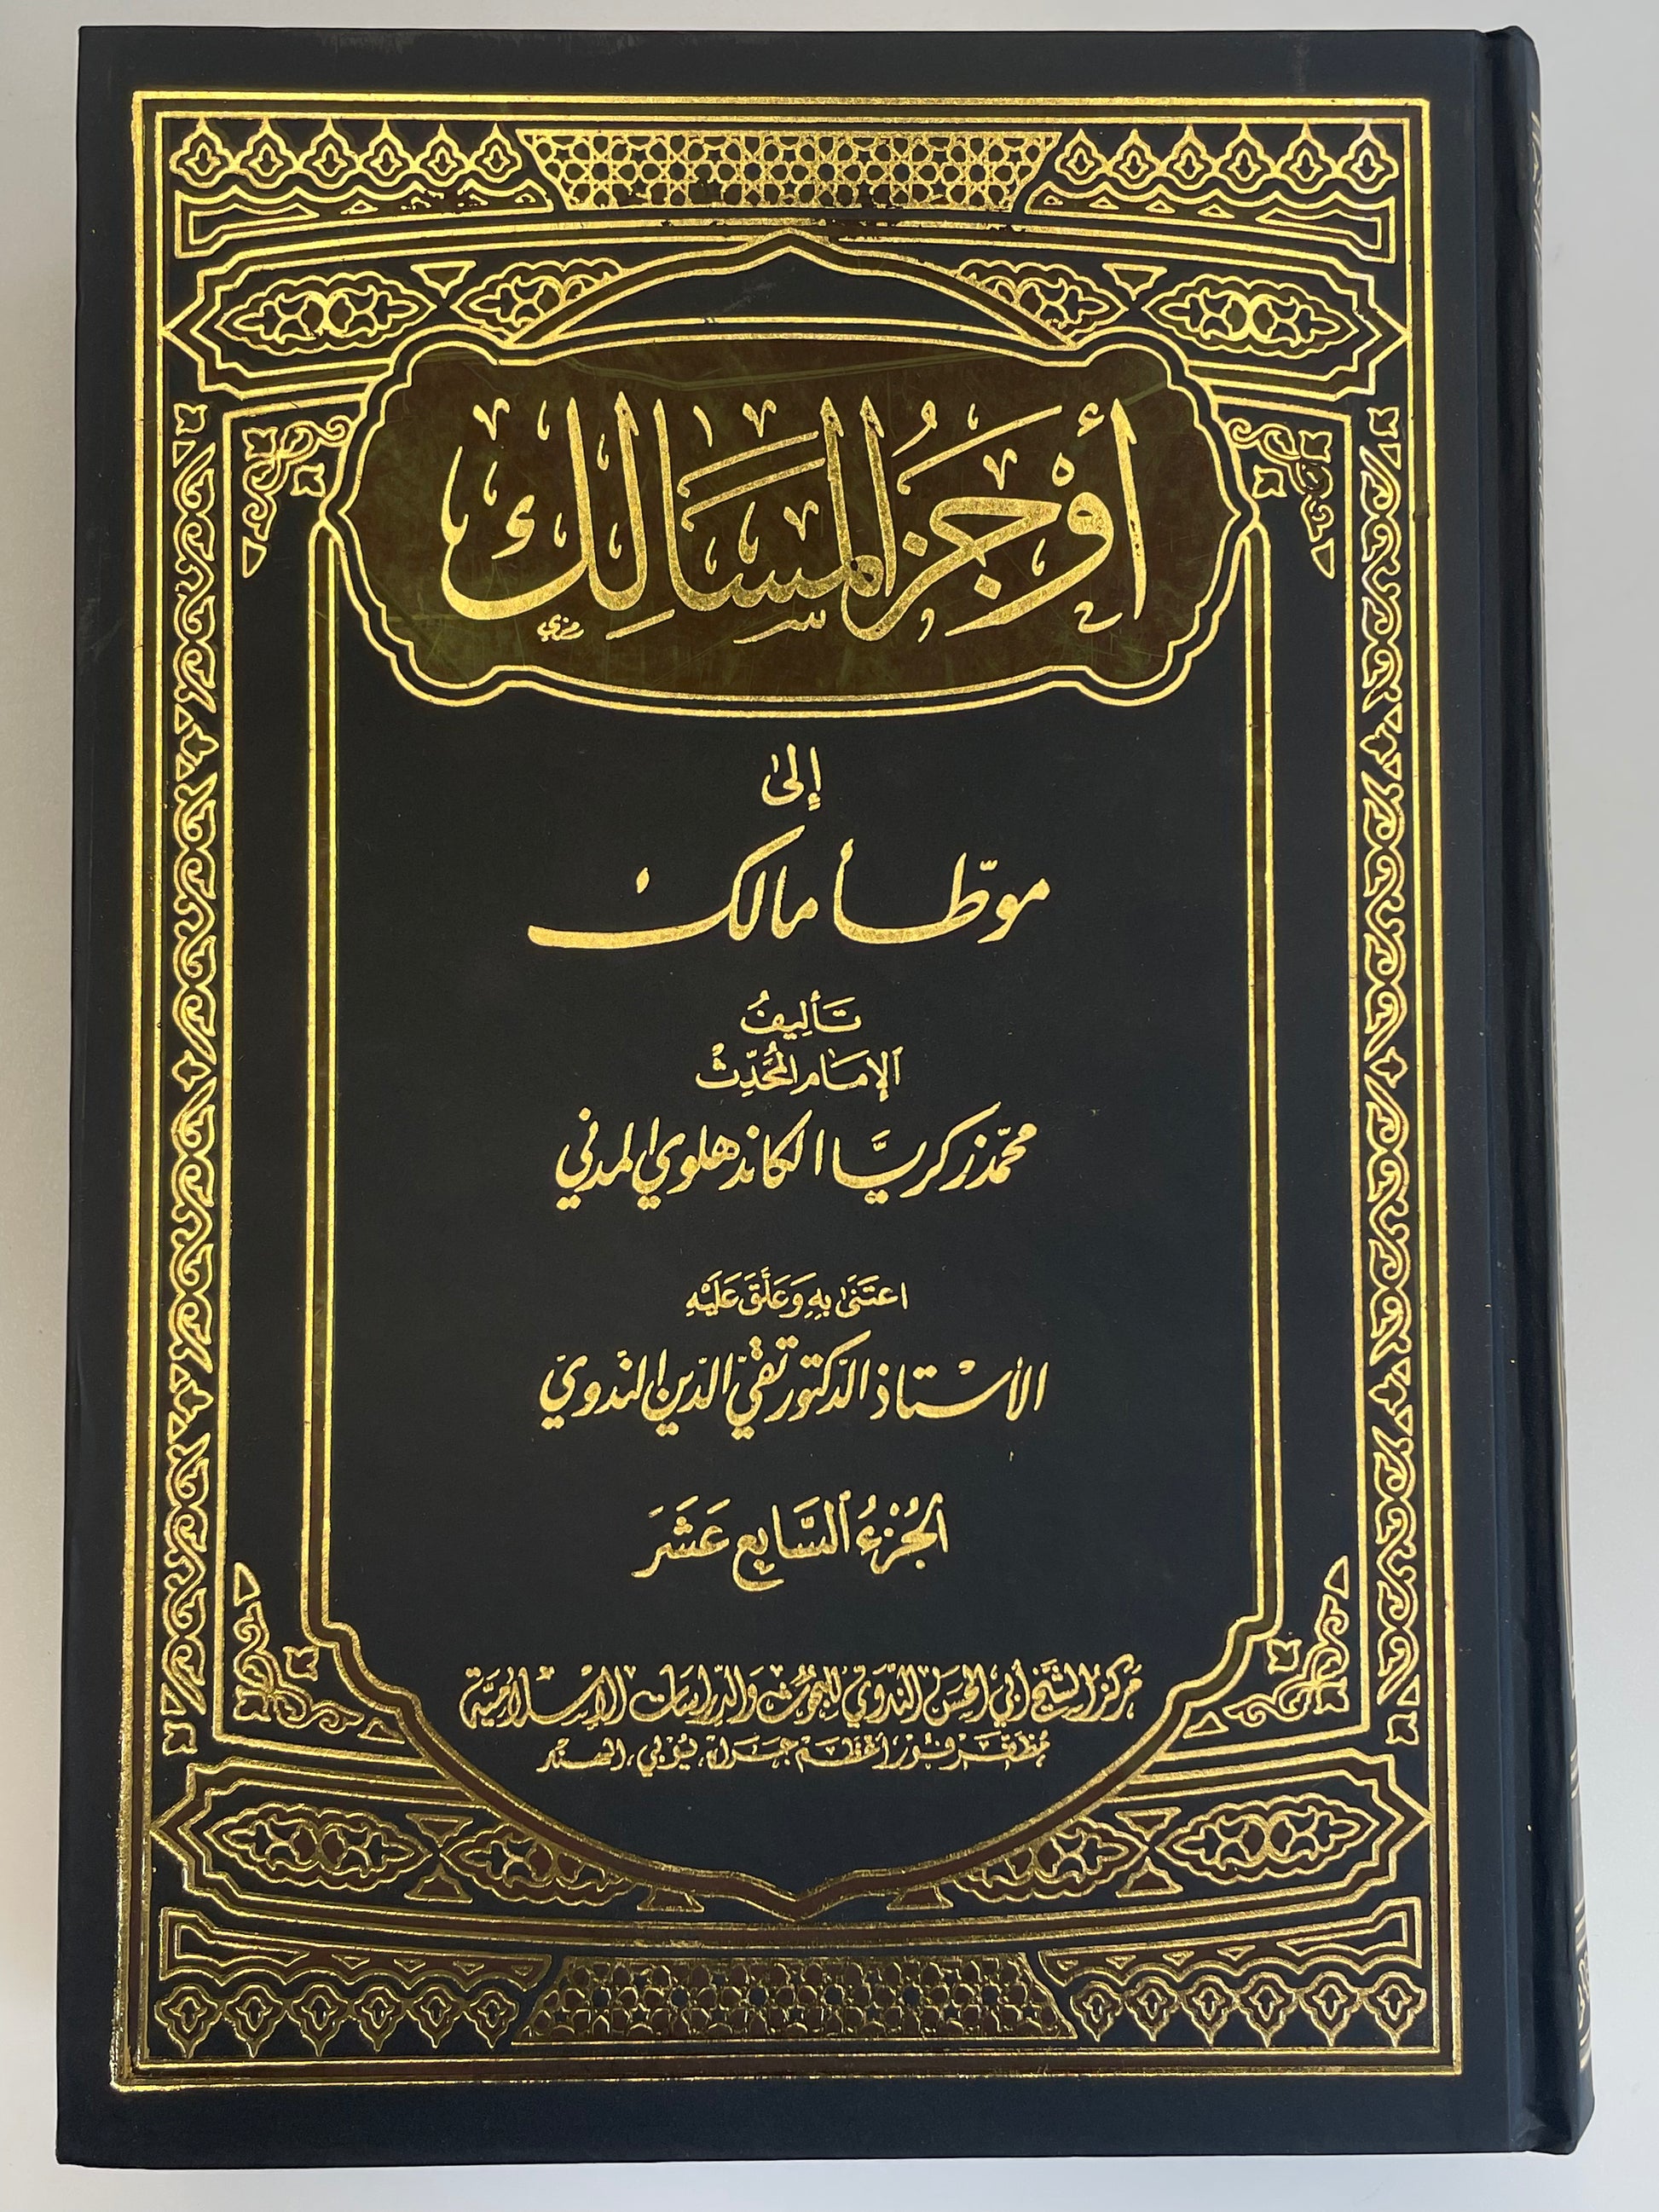 أَوْجَزُ المَسَالِك
إلى
موطّأ مالك
تَأليفُ
الإمَام المُحَدِّثْ
محمّد زكريَّا الكاندهلوي المدني
اعتَنىٰ بِهِ وَعَلَّقَ عَلَيْهِ
الأستاذ الدّكتور تقيّ الدّين النّدوي
الجُزءُ السَّابِع عَشَرَ
مَركز الشَّيخ أبي الحسَن النَّدوي للبحُوث وَالدِّراسَات الإسْلاميَّة
مُظفر فور، أعظم جراه، يوبي، الهند